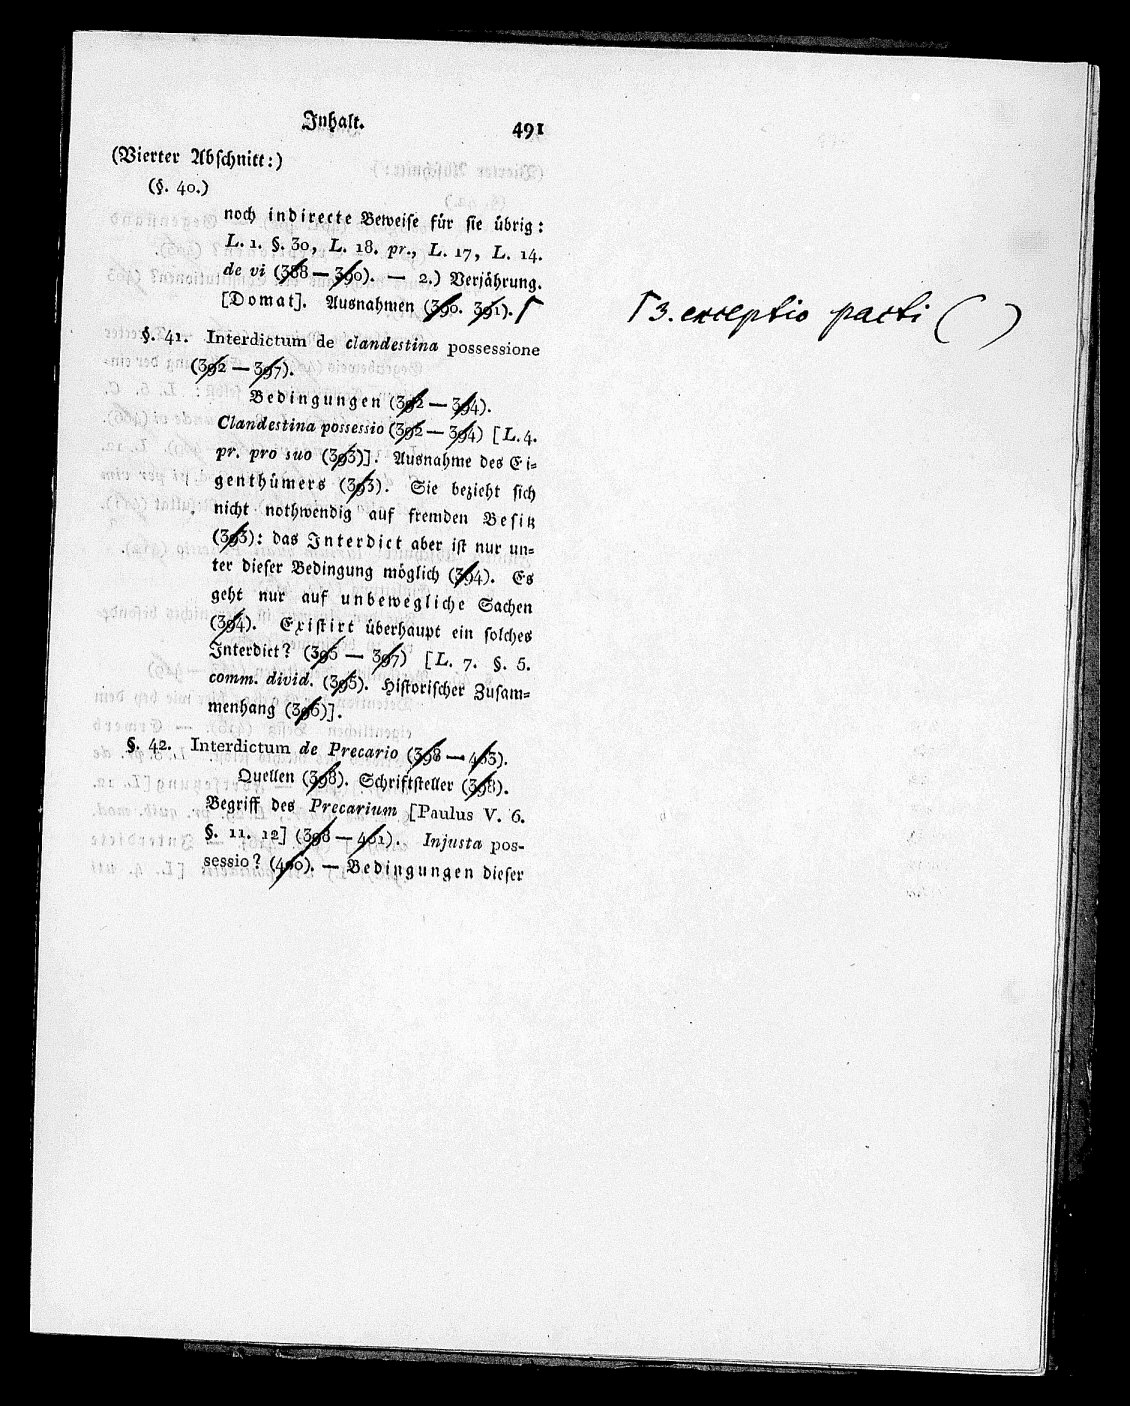 Inhalt. 491
(Vierter Abschnitt:)
(§. 40.)
noch indirecte Beweise für sie übrig:
L. 1. §. 30, L. 18. pr., L. 17, L. 14.
de vi (388 — 390). — 2.) Verjährung.
[Domat]. Ausnahmen (390. 391).
3. exceptio pacti ( )
§. 41. Interdictum de clandestina possessione
(392 — 397).
Bedingungen (392 — 394).
Clandestina possessio (392 — 394) [L. 4.
pr. pro suo (393)]. Ausnahme des Ei=
genthümers (393). Sie bezieht sich
nicht nothwendig auf fremden Besitz
(393): das Interdict aber ist nur un=
ter dieser Bedingung möglich (394). Es
geht nur auf unbewegliche Sachen
(394). Existirt überhaupt ein solches
Interdict? (395 — 397) [L. 7. §. 5.
comm. divid. (395). Historischer Zusam=
menhang (396)].
§. 42. Interdictum de Precario (398 — 403).
Quellen (398). Schriftsteller (398).
Begriff des Precarium [Paulus V. 6.
§. 11. 12] (398 — 401). Injusta pos-
sessio? (400). — Bedingungen dieser